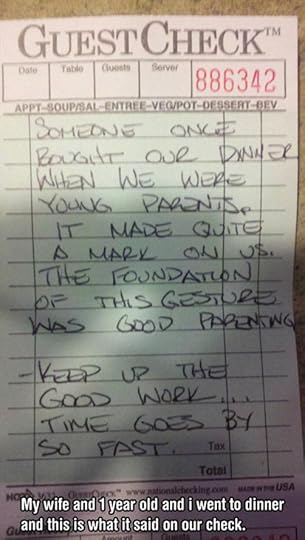 GUEST CHECK™
Date Table Guests Server 886342
APPT-SOUP/SAL-ENTREE-VEG/POT-DESSERT-BEV
SOMEONE ONCE
BOUGHT OUR DINNER
WHEN WE WERE
YOUNG PARENTS.
IT MADE QUITE
A MARK ON US.
THE FOUNDATION
OF THIS GESTURE
WAS GOOD PARENTING
-KEEP UP THE
GOOD WORK...
TIME GOES BY
SO FAST. Tax
Total
www.nationalchecking.com MADE IN THE USA
My wife and 1 year old and i went to dinner
and this is what it said on our check.